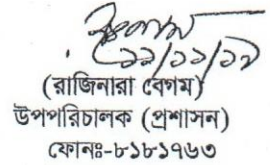 ১১/১১/১৯
(রাজিনারা বেগম)
উপপরিচালক (প্রশাসন)
ফোনঃ-৮১৮১৭৬৩